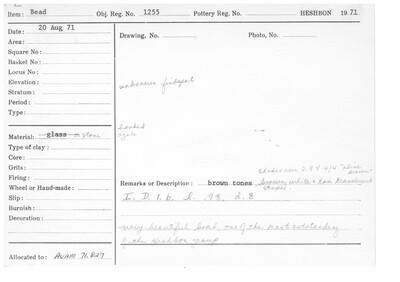 Item: Bead Obj. Reg. No. 1255 Pottery Reg. No. HESHBON 1971
Date: 20 Aug 71
Drawing, No. Photo, No.
Area:
Square No:
Basket No:
Locus No:
Elevation: unknown findspot
Stratum:
Period:
Type:
banded
Material: glass stone agate
Type of clay:
Core:
Grits:
Firing: 2.5 Y 4/4 "olive brown"
Wheel or Hand-made: Remarks or Description: brown tones brown, white & tan translucent stripes.
Slip: .8
Burnish:
Decoration: very beautiful bead, one of the most outstanding
of the Heshbon group
Allocated to: AUAM 71.827